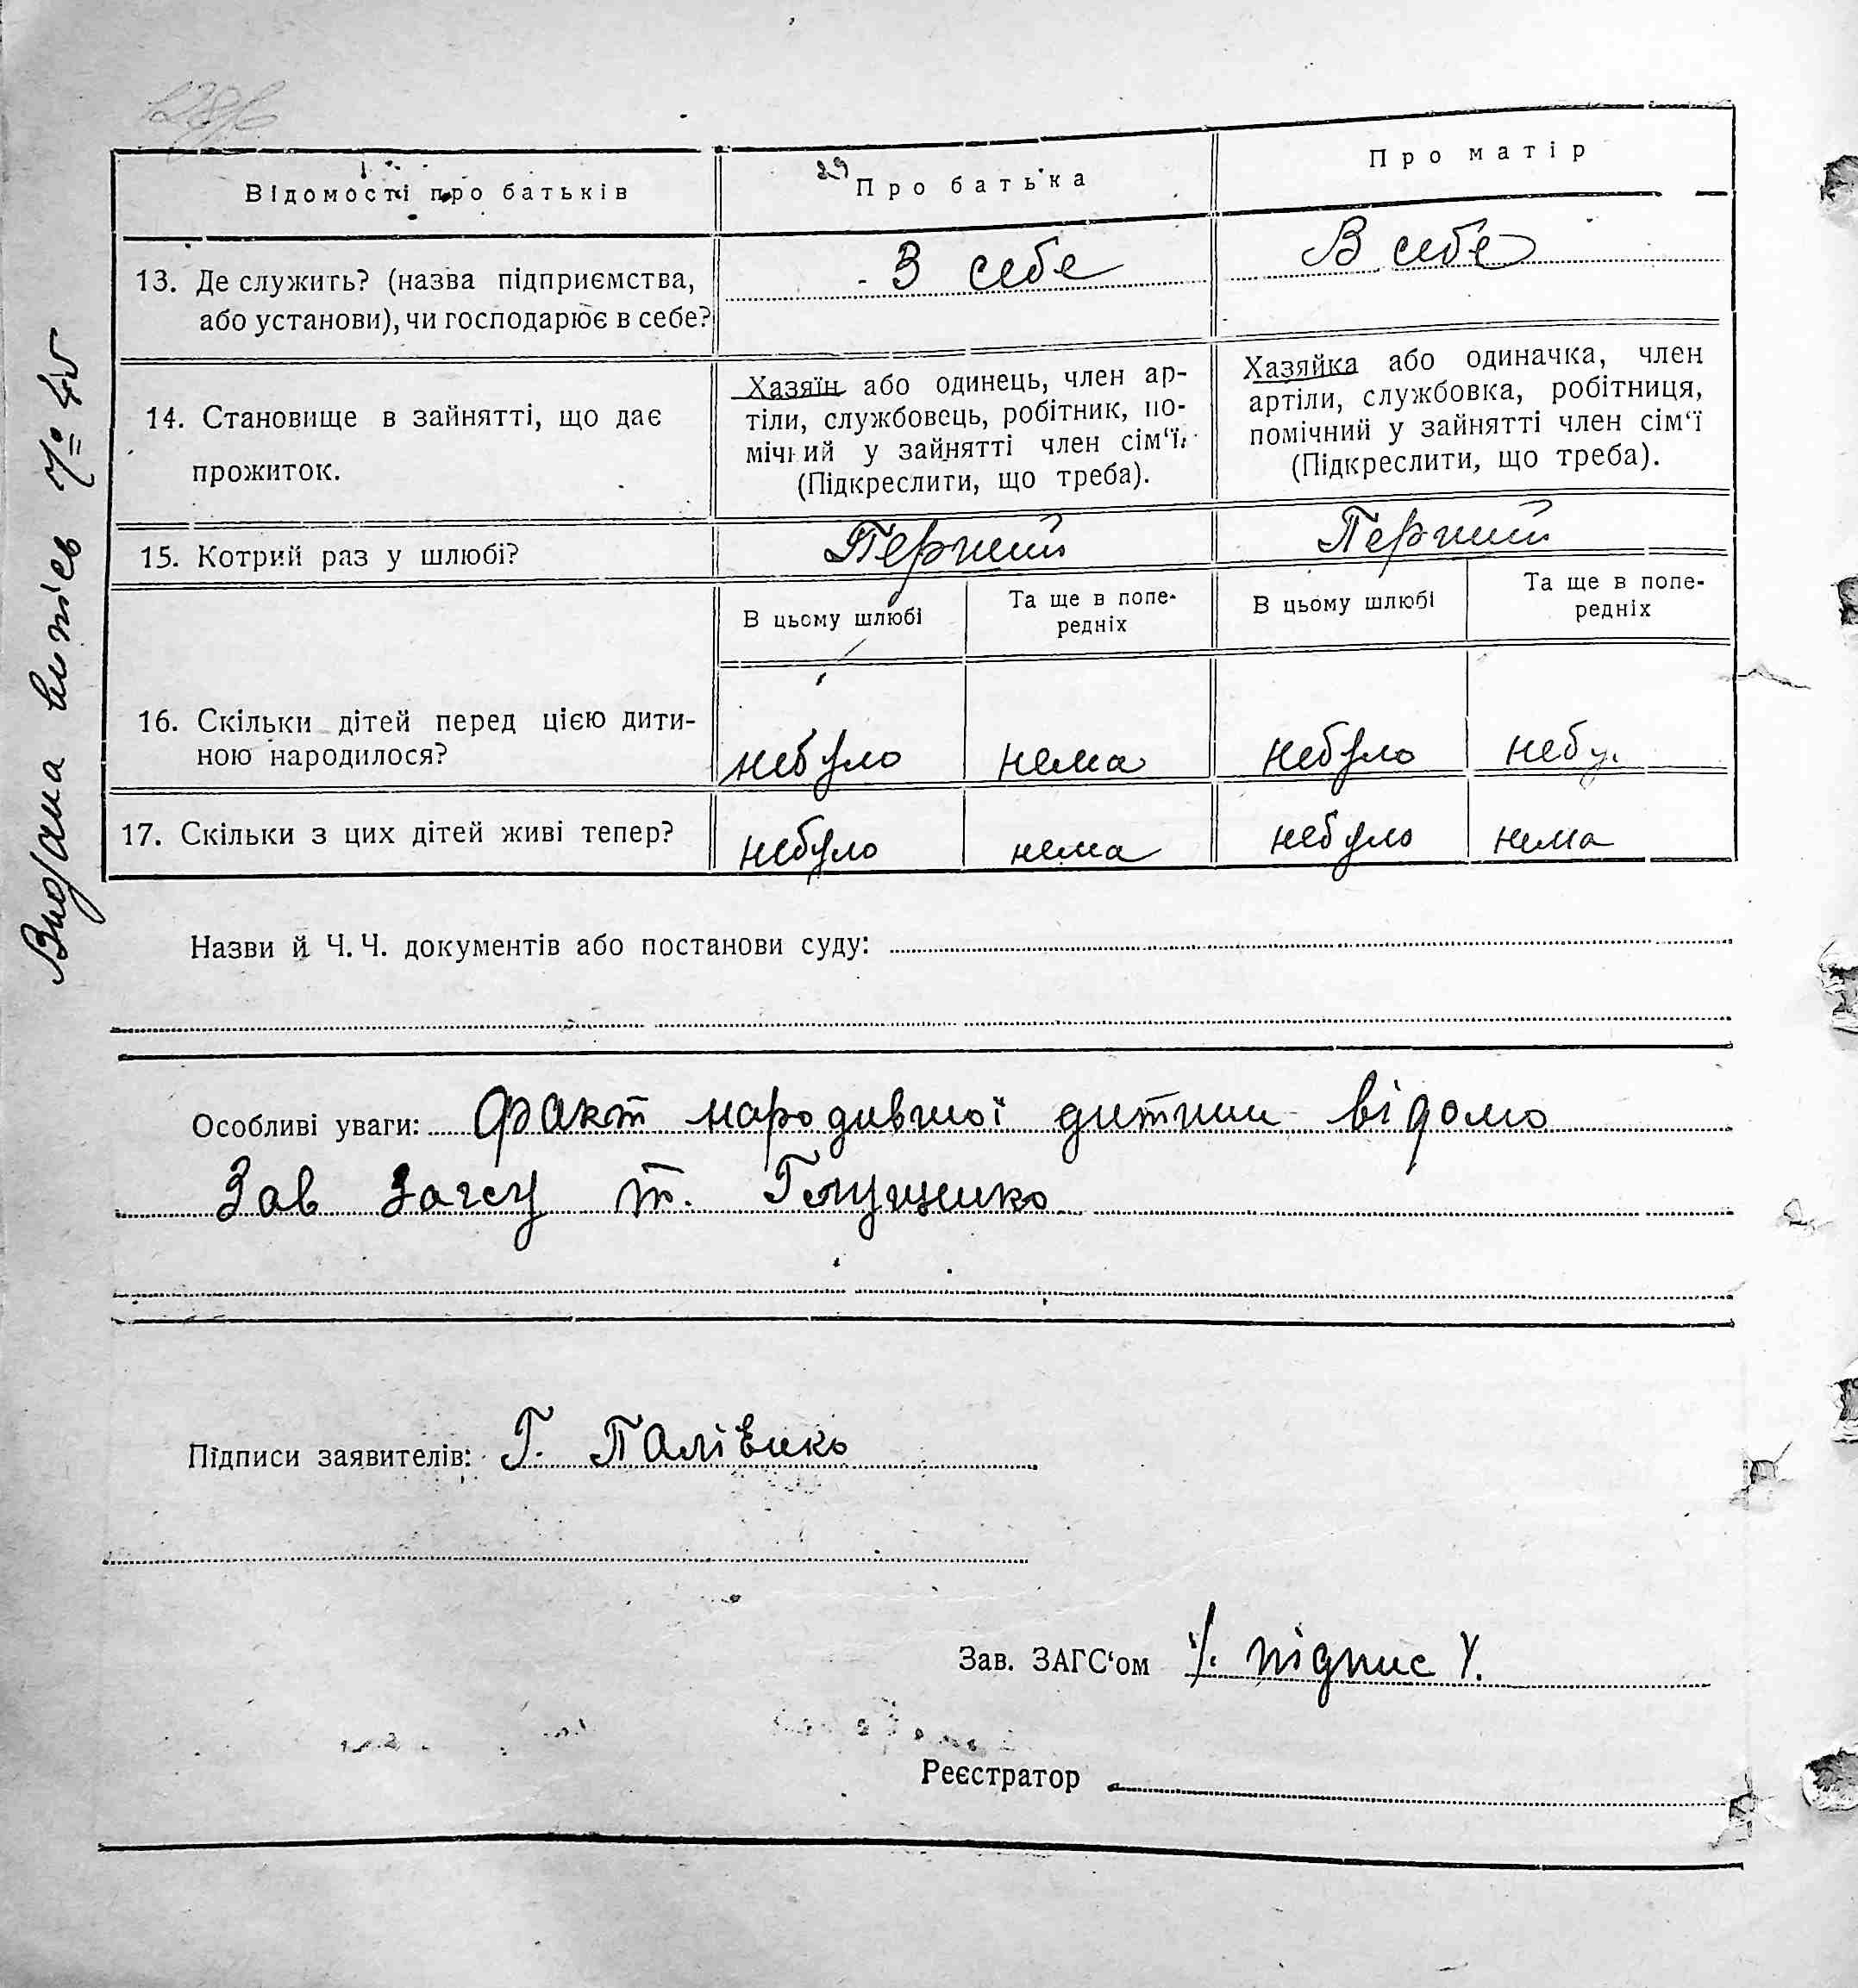 Відомості про батьків
Про батька
Про матір
13. Де служить? (назва підприємства,
або установи), чи господарює в себе?
В себе
В себе
14. Становище в зайнятті, що дає
прожиток.
Хазяїн або одинець, член ар-
тіли, службовець, робітник, по-
мічний у зайнятті член сім‘ї.
(Підкреслити, що треба).
Хазяйка або одиначка, член
артіли, службовка, робітниця,
помічний у зайнятті член сім‘ї
(Підкреслити, що треба).
15. Котрий раз у шлюбі?
Перший
Перший
В цьому шлюбі
Та ще в попе-
редніх
В цьому шлюбі
Та ще в попе-
редніх
16. Скільки дітей перед цією дити-
ною народилося?
небуло
нема
небуло
небу.
17. Скільки з цих дітей живі тепер?
небуло
нема
небуло
нема
Назви й Ч. Ч. документів або постанови суду:
Особливі уваги: Факт народившої дитини відомо
Зав Загсу т. Глущенко
Підписи заявителів: Г. Палівико
Зав. ЗАГС‘ом /. підпис
Реєстратор
Видана витяг №